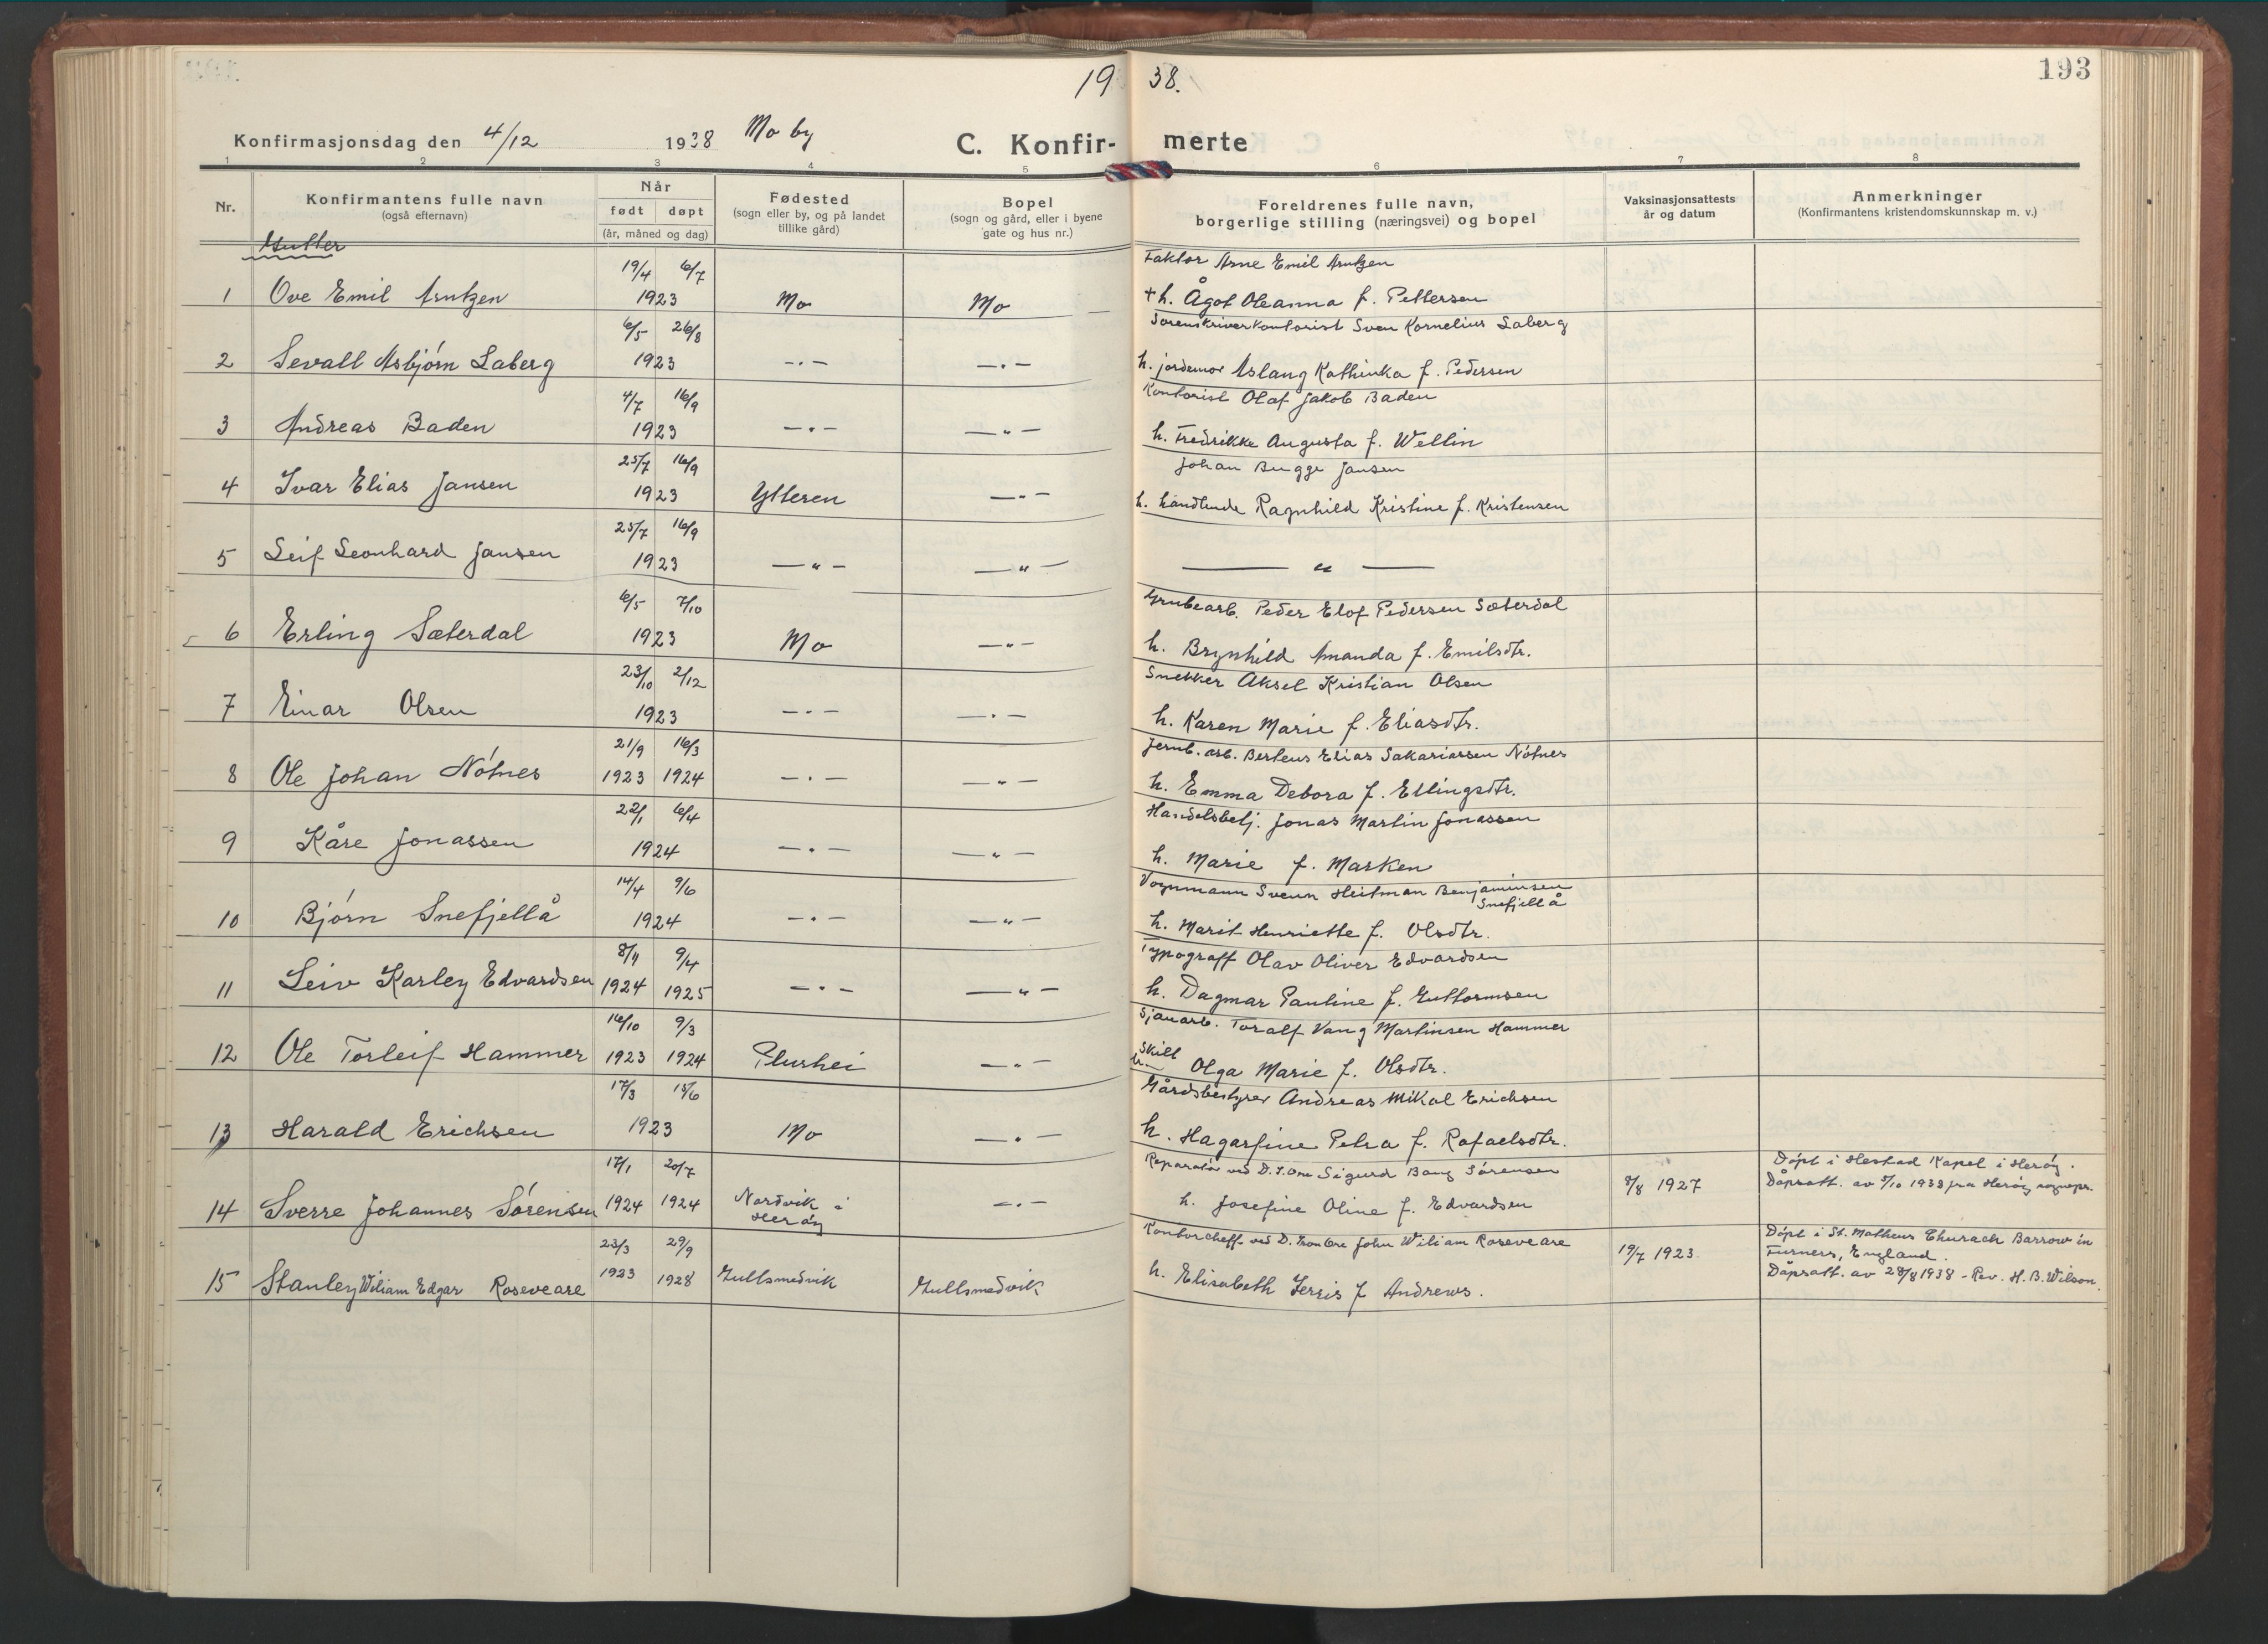 19 38.
193
Konfirmasjonsdag den 4/12 1938 Mo by
C. Konfirmerte
1 2 3 4 5 6 7 8
Nr.
Konfirmantens fulle navn
(også efternavn)
Når
født døpt
(år, måned og dag)
Fødested
(sogn eller by, og på landet
tillike gård)
Bopel
(sogn og gård, eller i byene
gate og hus nr.)
Foreldrenes fulle navn,
borgerlige stilling (næringsvei) og bopel
Vaksinasjonsattests
år og datum
Anmerkninger
(Konfirmantens kristendomskunnskap m. v.)
Gutter
19/4 6/7 Faktor Arne Emil Arntzen
1 Ove Emil Arntzen 1923 Mo Mo + h. Ågot Oleanna f. Pettersen
6/5 26/8 Sorenskriverkontorist Sven Kornelius Laberg
2 Sevall Asbjórn Laberg 1923 -.- -.- h. jordemor Aslaug Kathinka f. Pedersen
4/7 16/9 Kontorist Olaf Jakob Baden
3 Andreas Baden 1923 -.- -"- h. Fredrikke Augusta f. Wellin
25/7 16/9 Johan Bugge Jansen
4 Ivar Elias Jansen 1923 Ytteren -"- h. handlende Ragnhild Kristine f. Kristensen
25/7 16/9
5 Leif Leonhard Jansen 1923 -"- -"- -"-
6/5 7/10 Grubearb. Peder Elof Pedersen Sæterdal
6 Erling Sæterdal 1923 Mo -"- h. Brynhild Amanda f. Emilsdtr.
23/10 2/12 Snekker Aksel Kristian Olsen
7 Einar Olsen 1923 -.- -.- h. Karen Marie f. Eliasdtr.
21/9 16/3 Jernb. arb. Berteus Elias Sakariassen Nótnes
8 Ole Johan Nótnes 1923 1924 -.- -"- h. Emma Debora f. Ellingsdtr.
22/1 6/4 Handelsbetj. Jonas Martin Jonassen
9 Kåre Jonassen 1924 -.- -"- h. Marie f. Marken
14/4 9/6 Vognmann Svenn Heitman Benjaminsen
Snefjellå
10 Bjórn Snefjellå 1924 -.- -"- h. Marit Henriette f. Olsdtr.
8/11 9/4 Typograff Olav Oliver Edvardsen
11 Leiv Karley Edvardsen 1924 1925 -.- -"- h. Dagmar Pauline f. Guttormsen
16/10 9/3 Sjauarb. Toralf Vang Martinsen Hammer
12 Ole Torleif Hammer 1923 1924 Plurhei -"- skilt h. Olga Marie f. Olsdtr.
17/3 15/6 Gårdsbestyrer Andreas Mikal Erichsen
13 Harald Erichsen 1923 Mo -.- h. Hagarfine Petra f. Rafaelsdtr.
17/1 20/7 Reparatór ved D. I. Ore Sigurd Bang Sórensen
14 Sverre Johannes Sórensen 1924 1924 Nordvik i
Heróy -.- h. Josefine Oline f. Edvardsen
8/8 1927
Dópt i Hestad Kapel i Heróy.
Dåpsatt. av 5/10 1938 fra Heróy sognepr.
23/3 29/9 Kontorcheff ved D. Iron Ore John Wiliam Roseveare
15 Stanley Wiliam Edgar Roseveare 1923 1928 Gullsmedvik Gullsmedvik h. Elisabeth Ferris f Andrews.
19/7 1923
Dópt i St. Matheus Churach Barrow in
Furners, England.
Dåpsatt. av 28/8 1938 - Rev. H. B. Wilson.